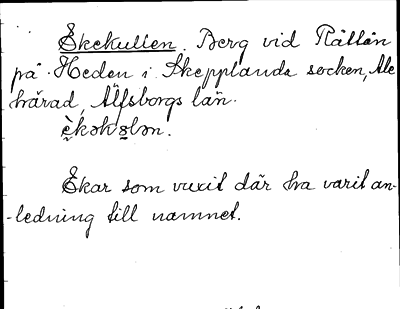 Ekekullen. Berg vid Rållån
på Heden i Skepplanda socken, Ale
härad, Älfsborgs län.
Ekar som vuxit där ha varit an-
-ledning till namnet.